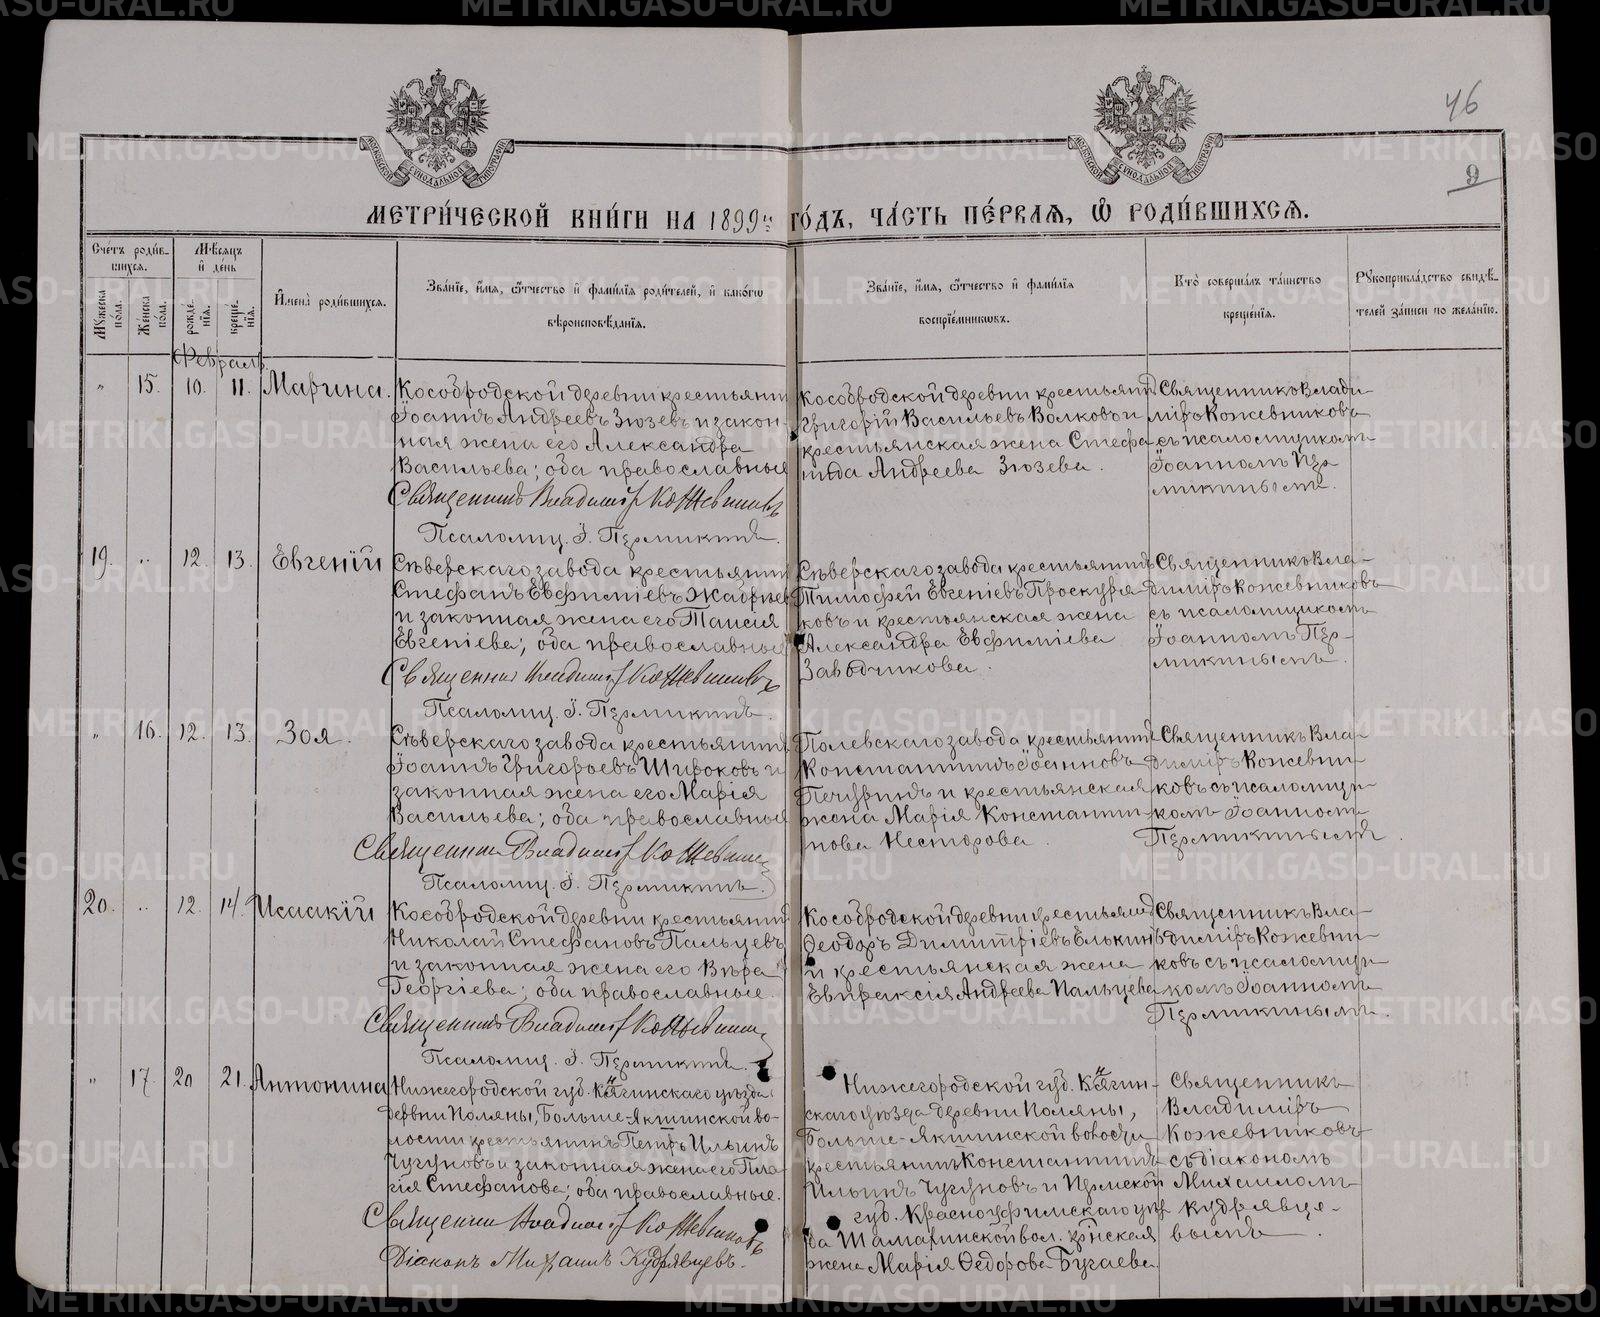 46
9
МЕТРИ́ЧЕСКОЙ КНИ́ГИ НА 1899й ГО́ДЪ, ЧА́СТЬ ПЕ́РВАѦ, Ѽ РОДИ́ВШИХСѦ.
Сче́тъ роди́вшихся.
Мꙋ́жеска по́ла.
Же́нска по́ла.
Мѣ́сяцъ и҆ день
рожде́нїя.
креще́нїя.
И҆мена̀ роди́вшихся.
Зва́нїе, и҆́мя, ѻ҆́тчество и҆ фами́лїя роди́телей, и҆ како́гѡ
вѣроисповѣ́данїя.
Зва́нїе, и҆́мя, ѻ҆́тчество и҆ фами́лїя
воспрїе́мникѡвъ.
Кто̀ соверша́лъ та́инство
креще́нїя.
Рꙋкоприкла́дство свидѣ́телей за́писи по жела́нїю.
Февраль
" 15. 10. 11. Марина.
Кособродской деревни крестьянинъ
Іоаннъ Андреевъ Зюзевъ и закон-
ная жена его Александра
Васильева; оба православные
Священникъ Владимір Кожевниковъ
Псаломщ. І. Пермикинъ.
Кособродской деревни крестьянинъ
Григорій Васильевъ Волковъ и
крестьянская жена Стефа-
нида Андреева Зюзева.
Священникъ Влади-
міръ Кожевниковъ
съ псаломщикомъ
Іоанномъ Пер-
микинымъ.
19. " 12. 13. Евгеній
Сѣверскаго завода крестьянинъ
Стефанъ Евфиміевъ Жабревъ
и законная жена его Таисія
Евгеніева; оба православные
Священник Владимір Кожевниковъ
Псаломщ. І. Пермикинъ.
Сѣверскаго завода крестьянинъ
Тимофей Евгеніевъ Проскуря-
ковъ и крестьянская жена
Александра Евфиміева
Заводчикова.
Священникъ Вла-
диміръ Кожевниковъ
съ псаломщикомъ
Іоанномъ Пер-
микинымъ.
" 16. 12. 13. Зоя.
Сѣверскаго завода крестьянинъ
Іоаннъ Григорьевъ Широковъ и
законная жена его Марія
Васильева; оба православные
Священник Владимір Кожевник
Псаломщ. І. Пермикинъ.
Полевскаго завода крестьянинъ
Константинъ Іоанновъ
Печуринъ и крестьянская
жена Марія Константи-
нова Несторова.
Священникъ Вла-
диміръ Кожевни-
ковъ съ псаломщи-
комъ Іоанномъ
Пермикинымъ.
20. " 12. 14. Исаакій
Кособродской деревни крестьянинъ
Николай Стефановъ Пальцевъ
и законная жена его Вѣра
Георгіева; оба православные.
Священникъ Владимір Кожевник
Псаломщ. І. Пермикинъ.
Кособродской деревни крестьянинъ
Ѳеодоръ Димитріевъ Елькинъ
и крестьянская жена
Евпраксія Андреева Пальцева
Священникъ Вла-
диміръ Кожевни-
ковъ съ псаломщи-
комъ Іоанномъ
Пермикинымъ.
" 17. 20 21. Антонина
Нижегородской губ. Княгинскаго уѣзда
деревни Поляны, Больше-Якшинской во-
лости крестьянинъ Петръ Ильинъ
Чугуновъ и законная жена его Пела-
гія Стефанова; оба православные.
Священник Владимір Кожевниковъ
Діаконъ Михаилъ Кудрявцевъ.
Нижегородской губ. Княгин-
скаго уѣзда деревни Поляны,
Больше-Якшинской волости
крестьянинъ Константинъ
Ильинъ Чугуновъ и Пермской
губ. Красноуфимскаго уѣз-
да Шамаринской вол. крнская
жена Марія Ѳедорова Бугаева
Священникъ
Владиміръ
Кожевниковъ
съ діакономъ
Михаиломъ
Кудрявце-
вымъ.